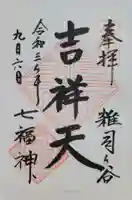 奉拝
雑司ヶ谷
吉祥天
七福神
令和三年
九月六日